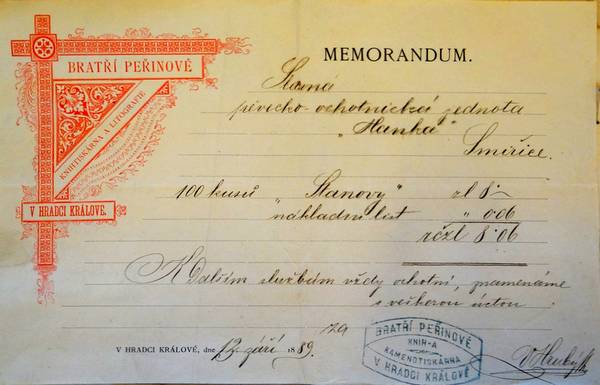 BRATŘÍ PEŘINOVÉ
KNIHTISKÁRNA A LITOGRAFIE
V HRADCI KRÁLOVÉ.
MEMORANDUM.
Slavná
pěvecko-ochotnická jednota
"Hanka"
Smiřice.
100 kusů "Stanovy" zl 8·–
nákladní list " 0·06
rčzl 8·06
K dalším službám vždy ochotni, znamenáme
s veškerou úctou
za
V HRADCI KRÁLOVÉ, dne 12 září 1889.
BRATŘÍ PEŘINOVÉ
KNIH- A
KAMENOTISKÁRNA
V HRADCI KRÁLOVÉ